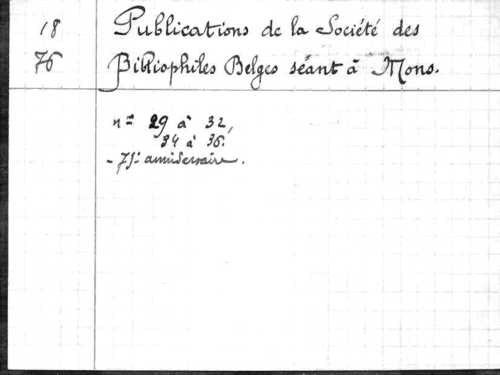 18 Publications de la Société des
76 Bibliophiles Belges séant à Mons.
nos 29 à 32,
34 à 36.
- 75e anniversaire.